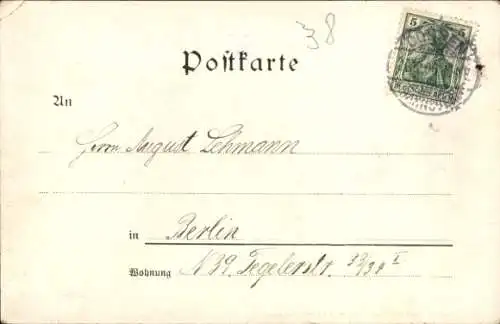 38
5
Postkarte
An
Herrn August Lehmann
in Berlin
Wohnung N 39. Tegelerstr.